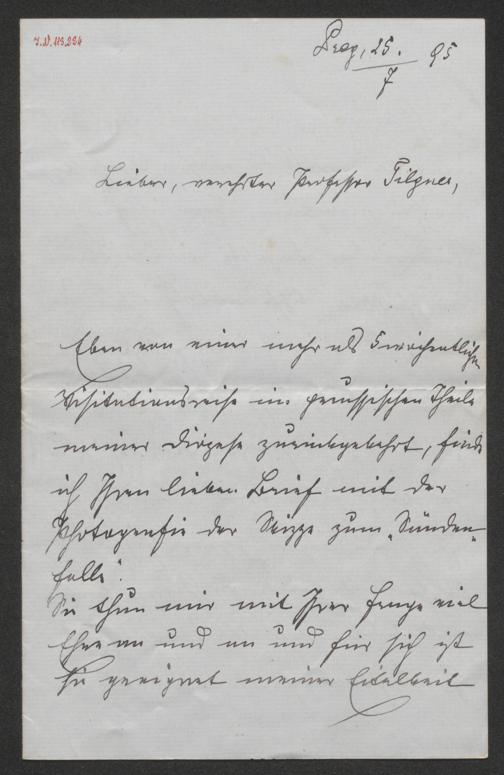 I.N. 113.234
Prag, 25. 95
7
Lieber, verehrter Professor Tilgner,
Eben von einer mehr als 5 wöchentlichen
Visitationsreise im preussischen Theile
meiner Diözese zurückgekehrt, finde
ich Ihren lieben Brief mit der
Photografie der Skizze zum „Sünden-
falle“.
Sie thun mir mit Ihrer Frage viel
Ehre an und an und für sich ist
sie geeignet meiner Eitelkeit